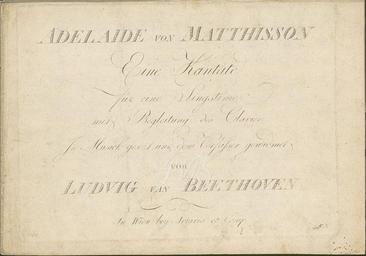 ADELAIDE VON MATTHISSON
Eine Kantate
für eine Singstimme
mit Begleitung des Clavier
In Musick gesetzt und dem Verfasser gewidmet
VON
LUDVIG VAN BEETHOVEN
In Wien bey Artaria et Comp.